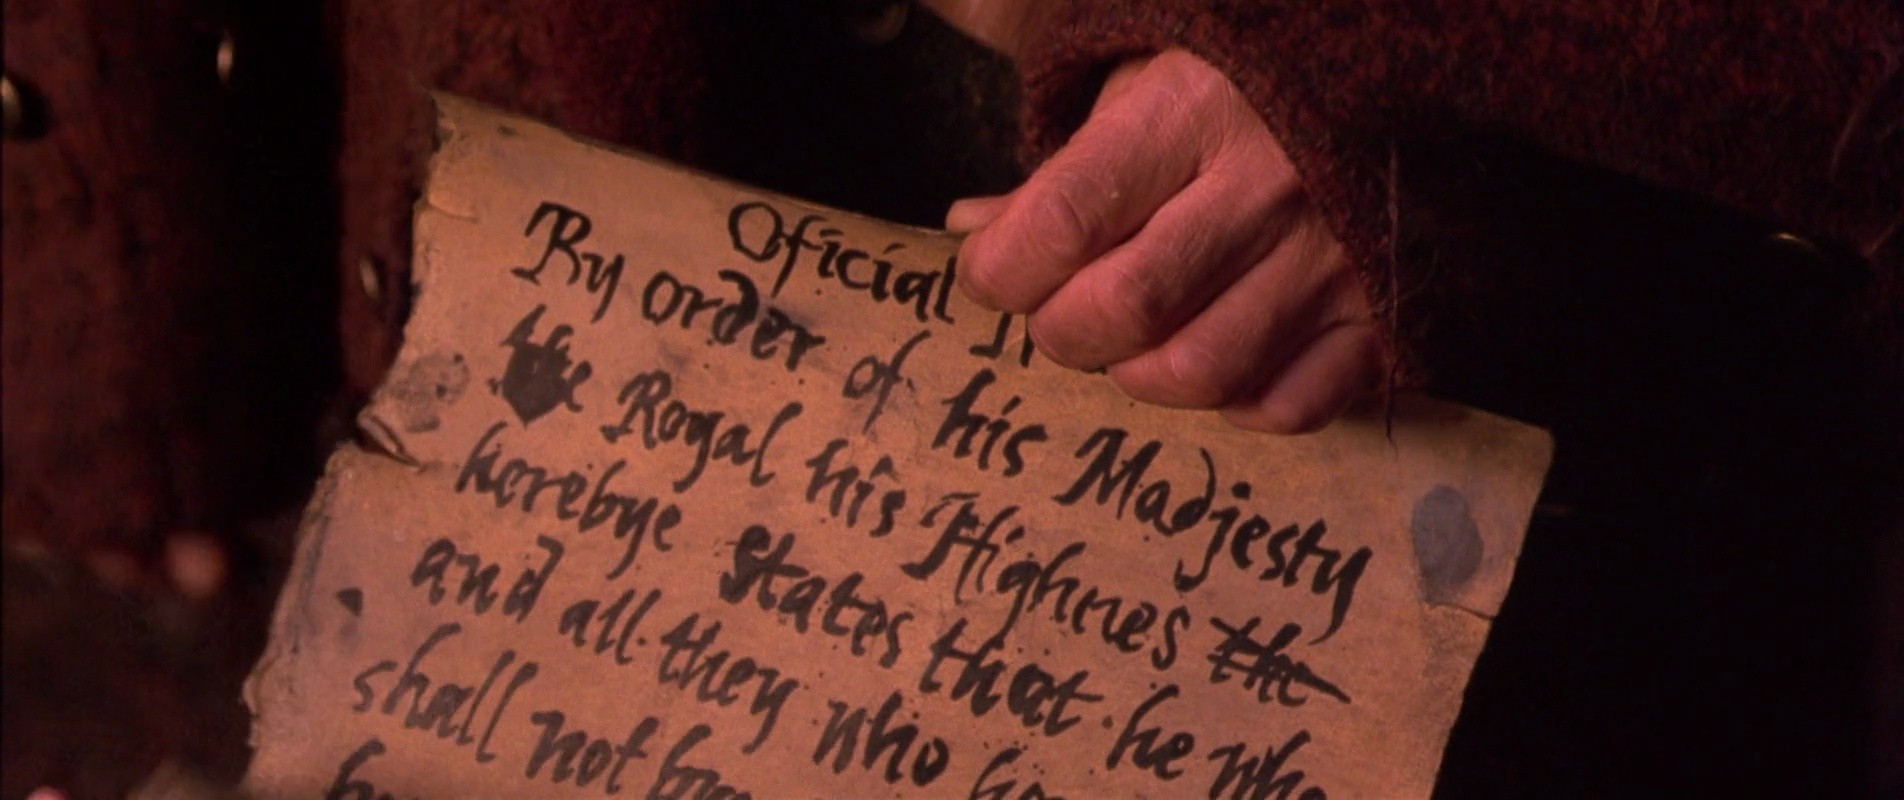 Oficial
By order of his Madjesty
the Royal his Highnes the
herebye States that he who
and all they who
shall not